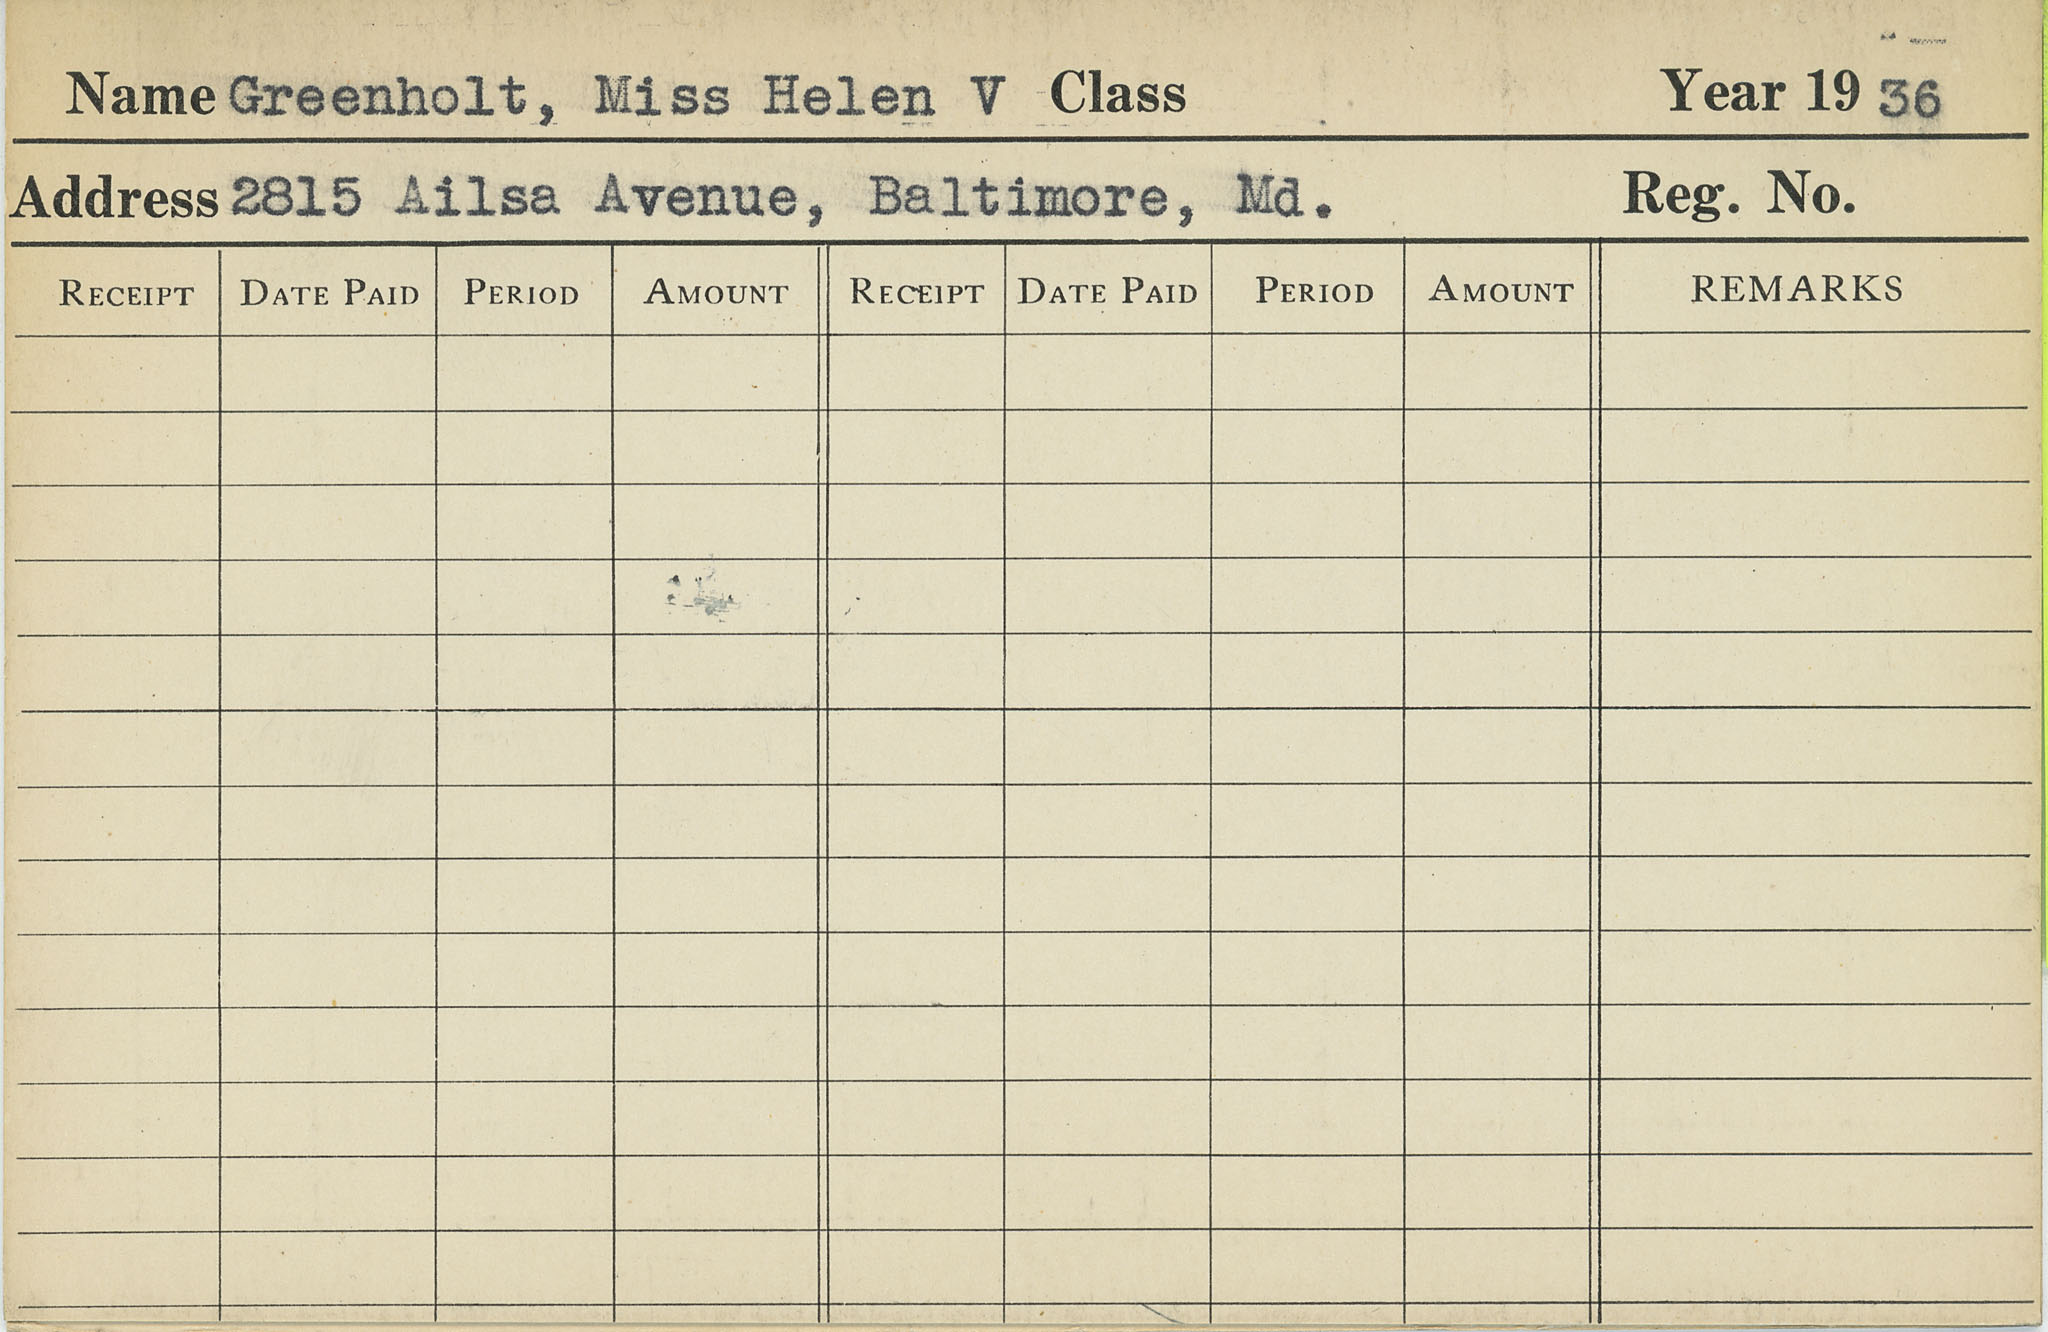 Name Greenholt, Miss Helen V Class Year 19 36
Address 2815 Ailsa Avenue, Baltimore, Md. Reg. No.
RECEIPT DATE PAID PERIOD AMOUNT RECEIPT DATE PAID PERIOD AMOUNT REMARKS